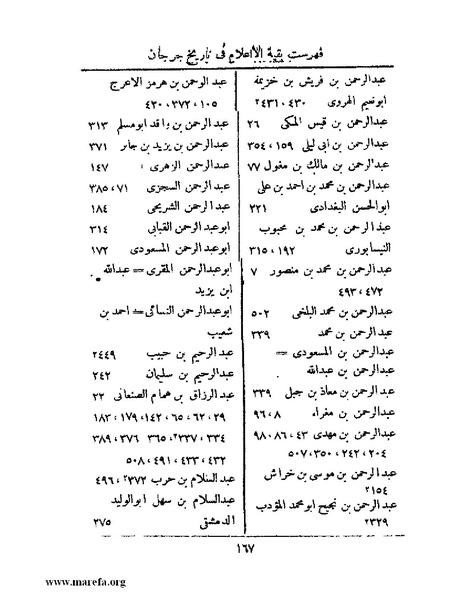 فهرست بقية الأعلام فى تاريخ جرجان
عبدالرحمن بن قريش بن خزيمة
ابونعيم الهروى ٤٣٠، ٢٤٣١
عبدالرحمن بن قيس المكى ٢٦
عبدالرحمن بن ابى ليلى ١٥٩، ٣٥٤
عبدالرحمن بن مالك بن مغول ٧٧
عبدالرحمن بن محمد بن احمد بن على
ابوالحسن البغدادى ٢٢١
عبدالرحمن بن محمد بن محبوب
النيسابورى ١٩٢، ٣١٥
عبدالرحمن بن محمد بن منصور ٧
٤٧٢، ٤٩٣
عبدالرحمن بن محمد البلخى ٥٠٢
عبدالرحمن بن محمد ٣٣٩
عبدالرحمن بن المسعودى =
عبدالرحمن بن عبدالله
عبدالرحمن بن معاذ بن جبل ٣٣٩
عبدالرحمن بن مغراء ٨، ٩٦
عبدالرحمن بن مهدى ٤٣، ٨٦، ٩٨
٢٠٤، ٢٤٢، ٣٥٠، ٥٠٧
عبدالرحمن بن موسى بن خراش
٢١٥٤
عبدالرحمن بن نجيح ابومحمد المؤدب
٢٣٢٩
عبد الرحمن بن هرمز الاعرج
١٠٥، ٣٧٢، ٤٣٠
عبدالرحمن بن واقد ابومسلم ٣١٣
عبدالرحمن بن يزيد بن جابر ٣٧١
عبدالرحمن الزهرى ١٤٧
عبد الرحمن السجزى ٧١، ٣٨٥
عبدالرحمن الشريحى ١٨٤
ابوعبدالرحمن القبابى ٣١٤
ابوعبدالرحمن المسعودى ١٧٢
ابوعبدالرحمن المقرى = عبدالله
ابن يزيد
ابوعبدالرحمن النسائى = احمد بن
شعيب
عبدالرحيم بن حبيب ٢٤٤٩
عبدالرحيم بن سليمان ٢٤٢
عبدالرزاق بن همام الصنعانى ٢٢
٢٩، ٦٢، ٦٥، ١٤٢، ١٧٩، ١٨٣
٣٣٤، ٢٣٣٧، ٣٦٥، ٣٧٦، ٣٨٩
٤٣٢، ٤٣٣، ٤٩١، ٥٠٨
عبدالسلام بن حرب ٢٣٧٢، ٤٩٦
عبدالسلام بن سهل ابوالوليد
الدمشقى ٢٧٥
١٦٧
www.marefa.org